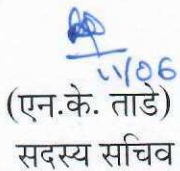 11/06
(एन.के. ताडे)
सदस्य सचिव